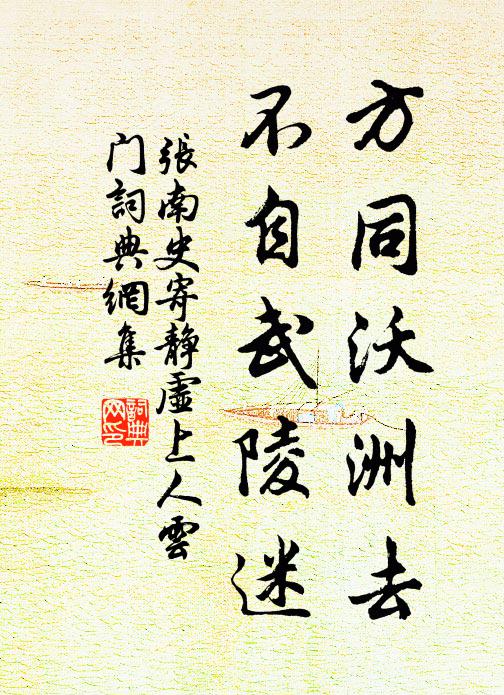 方同沃洲去
不自武陵迷
張南史寄靜虛上人雲
门詞典網集
詞典
网印